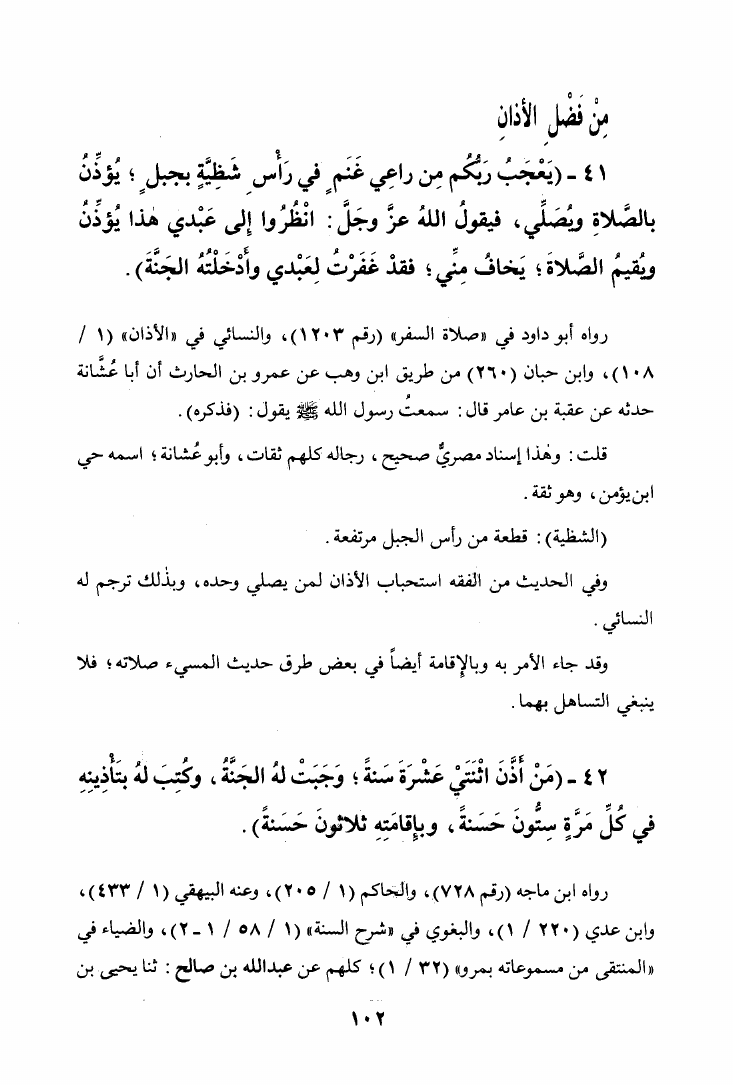 مِنْ فَضْلِ الأذانِ
٤١ - (يَعْجَبُ رَبُّكُم مِن راعِي غَنَمٍ في رَأْسِ شَظِيَّةٍ بجبلٍ؛ يُؤذِّنُ
بالصَّلاةِ ويُصَلِّي، فيقولُ اللهُ عزَّ وجَلَّ: انْظُرُوا إلى عَبْدي هٰذا يُؤذِّنُ
ويُقيمُ الصَّلاةَ؛ يَخافُ مِنِّي؛ فقدْ غَفَرْتُ لِعَبْدي وأَدْخَلْتُهُ الجَنَّةَ).
رواه أبو داود في «صلاة السفر» (رقم ١٢٠٣)، والنسائي في «الأذان» (١ /
١٠٨)، وابن حبان (٢٦٠) من طريق ابن وهب عن عمرو بن الحارث أن أبا عُشَّانة
حدثه عن عقبة بن عامر قال: سمعتُ رسول الله ﷺ يقول: (فذكره).
قلت: وهٰذا إسناد مصريٌّ صحيح، رجاله كلهم ثقات، وأبو عُشانة؛ اسمه حي
ابن يؤمن، وهو ثقة.
(الشظية): قطعة من رأس الجبل مرتفعة.
وفي الحديث من الفقه استحباب الأذان لمن يصلي وحده، وبذٰلك ترجم له
النسائي.
وقد جاء الأمر به وبالإقامة أيضاً في بعض طرق حديث المسيء صلاته؛ فلا
ينبغي التساهل بهما.
٤٢ - (مَنْ أَذَّنَ اثْنَتَيْ عَشْرَةَ سَنةً؛ وَجَبَتْ لهُ الجَنَّةُ، وكُتِبَ لهُ بتَأْذِينِهِ
في كُلِّ مَرَّةٍ سِتُّونَ حَسَنةً، وبإقامَتِهِ ثلاثونَ حَسَنةً).
رواه ابن ماجه (رقم ٧٢٨)، والحاكم (١ / ٢٠٥)، وعنه البيهقي (١ / ٤٣٣)،
وابن عدي (٢٢٠ / ١)، والبغوي في «شرح السنة» (١ / ٥٨ / ١ ـ ٢)، والضياء في
«المنتقى من مسموعاته بمرو» (٣٢ / ١)؛ كلهم عن عبدالله بن صالح: ثنا يحيى بن
١٠٢